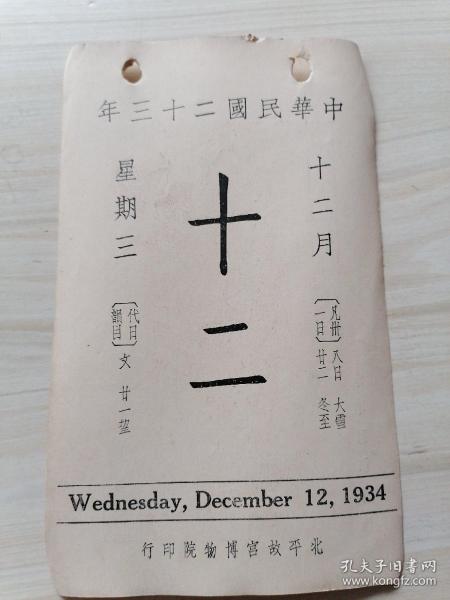 中華民國二十三年
十二月
〔凡卅一日〕 八日 大雪 廿二 冬至
十二
星期三
〔代日韻目〕 文 廿一望
Wednesday, December 12, 1934
北平故宮博物院印行
孔夫子旧书网